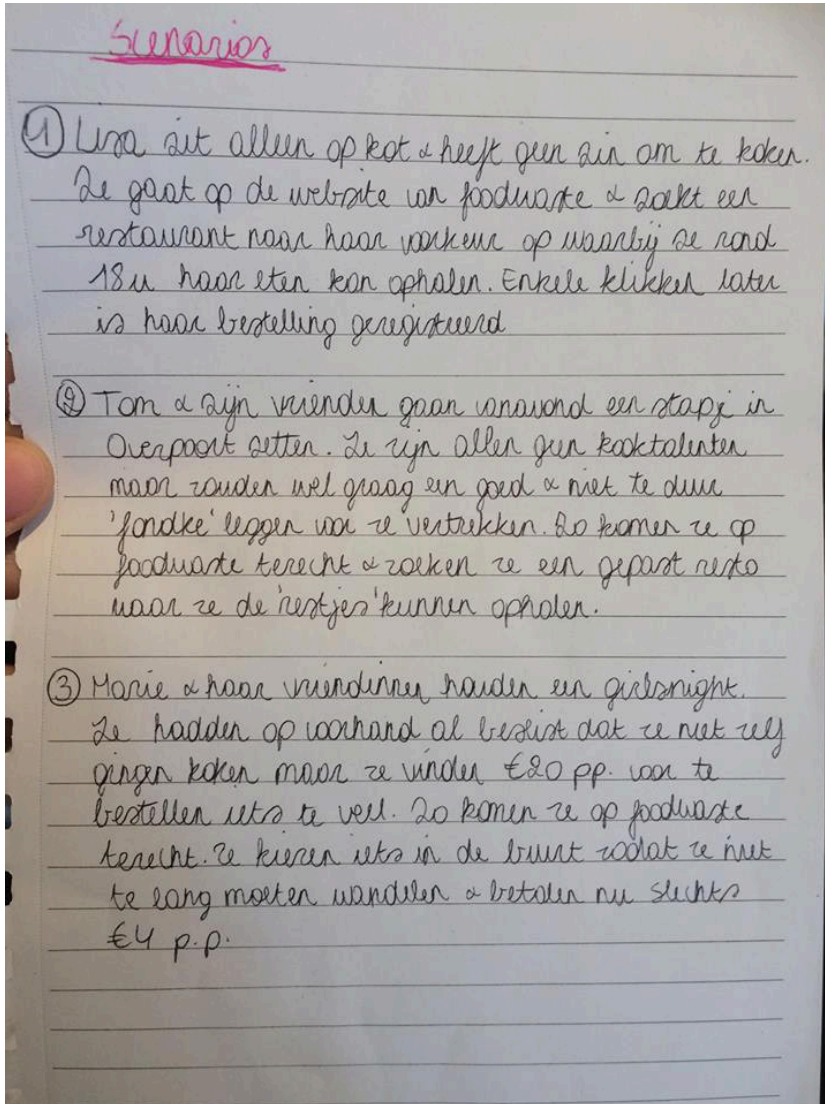 Scenarios
① Lisa zit alleen op kot & heeft geen zin om te koken.
Ze gaat op de website van foodwaste & zoekt een
restaurant naar haar voorkeur op waarbij ze rond
18u haar eten kan ophalen. Enkele klikken later
is haar bestelling geregistreerd
② Tom & zijn vrienden gaan vanavond een stapje in
Overpoort zetten. Ze zijn allen geen kooktalenten
maar zouden wel graag een goed & niet te duur
'fondke' leggen voor ze vertrekken. Zo komen ze op
foodwaste terecht & zoeken ze een gepast resto
waar ze de 'restjes' kunnen ophalen.
③ Marie & haar vriendinnen houden een girlsnight.
Ze hadden op voorhand al beslist dat ze niet zelf
gingen koken maar ze vinden €20 pp. voor te
bestellen iets te veel. Zo komen ze op foodwaste
terecht. Ze kiezen iets in de buurt zodat ze niet
te lang moeten wandelen & betalen nu slechts
€4 p.p.